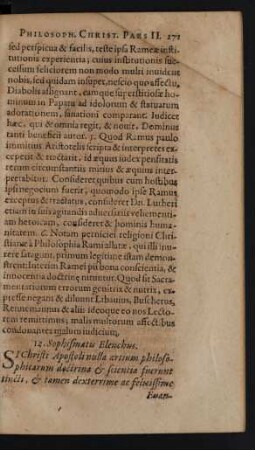 PHILOSOPH. CHRIST. PARS II. 271
sed perspicua & facilis, teste ipsa Rameæ insti-
tutionis experientia; cuius institutionis suc-
cessum feliciorem non modo multi invident
nobis, sed quidam insuper, nescio quo affectu,
Diabolo assignant, eamque superstitiosæ ho-
minum in Papatu ad idolorum & statuarum
adorationem, sanationi comparant. Judicet
hæc, qui & omnia regit, & novit, Dominus
tanti beneficii autor. 5. Quod Ramus paulo
inmitius Aristotelis scripta & interpretes ex-
ceperit & tractarit, id æquus index pensitatis
rerum circumstantiis mitius & æquius inter-
pretabitur. Consideret quibus cum hostibus
ipsi negocium fuerit, quomodo ipse Ramus
exceptus & tractatus, consideret Dn. Lutheri
etiam in suis agnandis adversariis vehementi-
am heroicam, consideret & hominis huma-
nitatem. 6. Notam perniciei religioni Chri-
stianæ à Philosophia Rami allatæ, qui illi inu-
rere satagunt, primum legitime istam demon-
strent: interim Ramei pii bona conscientia, &
innocentia doctrinæ nituntur. Quod sit Sacra-
mentariorum errorum genitrix & nutrix, ex-
presse negant & diluunt Libavius, Buscherus,
Rennemannus & alii: ideoque eo nos Lecto-
rem remittimus; malis nostrorum affectibus
condonantes malum iudicium.
12. Sophismatu Elenchus.
SI Christi Apostoli nulla artium philoso-
phicarum doctrina & scientia fuerunt
tincti, & tamen dexterrime ac felicissime
Evan-